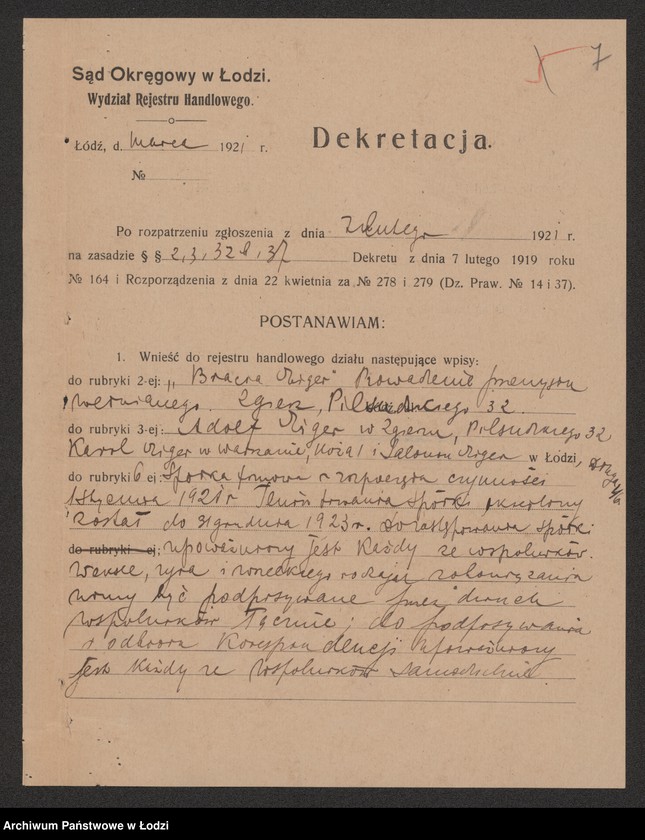 7
Sąd Okręgowy w Łodzi.
Wydział Rejestru Handlowego.
Łódź, d. marca 1921 r.
№
Dekretacja.
Po rozpatrzeniu zgłoszenia z dnia lutego 1921 r.
na zasadzie § § 2, 3, 32 i 37 Dekretu z dnia 7 lutego 1919 roku
№ 164 i Rozporządzenia z dnia 22 kwietnia za № 278 i 279 (Dz. Praw. № 14 i 37).
POSTANAWIAM:
1. Wnieść do rejestru handlowego działu następujące wpisy:
do rubryki 2-ej: „Bracia Niger" Prowadzenie przemysłu
wełnianego. Zgierz, Piłsudskiego 32.
do rubryki 3-ej: Adolf Niger w Zgierzu, Piłsudskiego 32
Karol Niger w Warszawie, i Salomon Niger w Łodzi,
do rubryki 6 ej: Spółka firmowa rozpoczęła czynności
1 stycznia 1921 r. Termin trwania spółki określony
został do 31 grudnia 1923 r. Do zastępowania spółki
do rubryki -ej: upoważniony jest każdy ze wspólników.
Weksle, żyra i wszelkiego rodzaju zobowiązania
winny być podpisywane przez dwuch
wspólników łącznie; do podpisywania
i odbioru korespondencji upoważniony
jest każdy ze wspólników samodzielnie.
Archiwum Państwowe w Łodzi